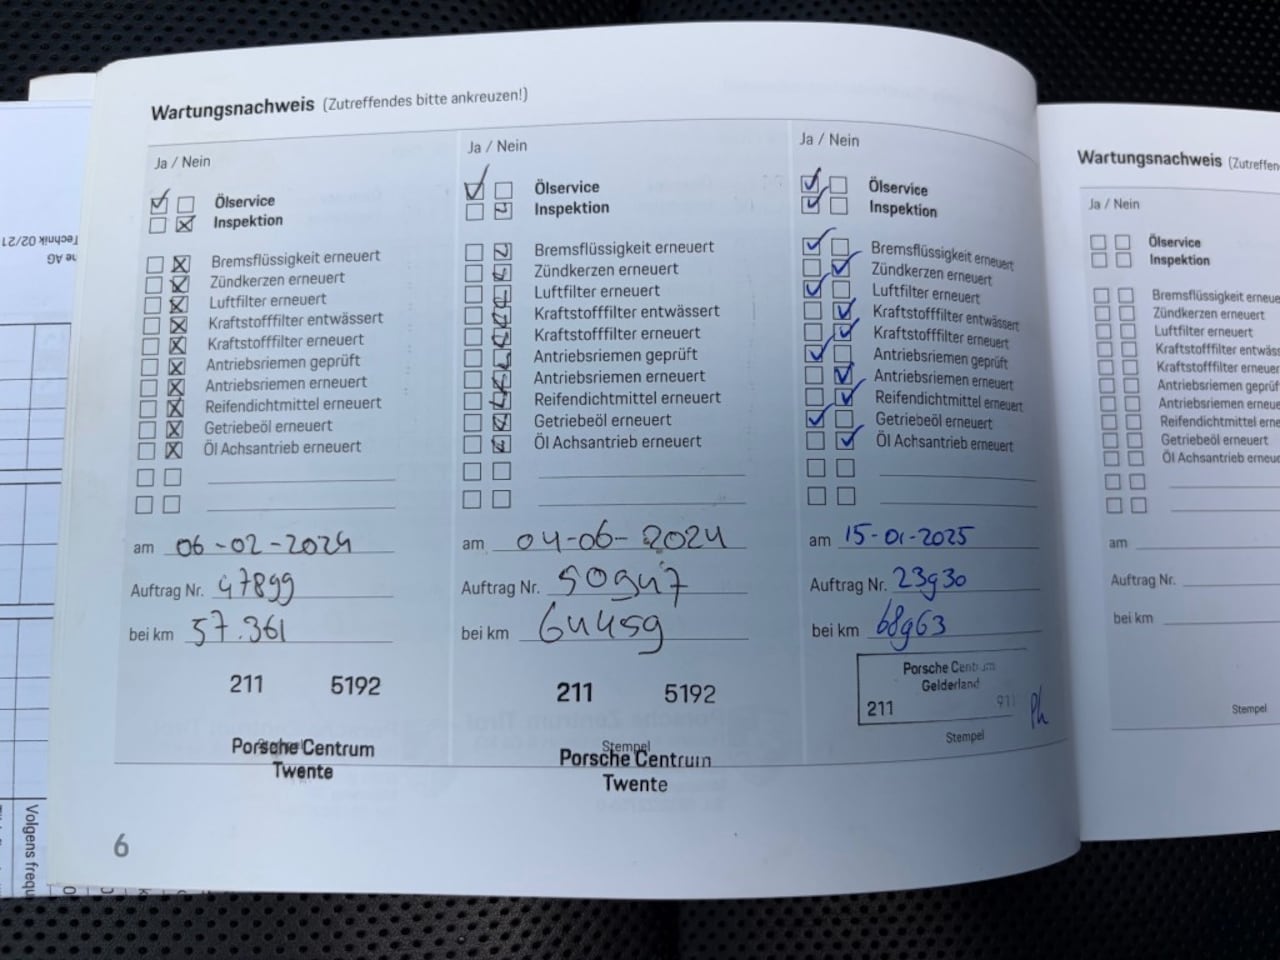 Wartungsnachweis (Zutreffendes bitte ankreuzen!)
Ja / Nein
Ölservice
Inspektion
Bremsflüssigkeit erneuert
Zündkerzen erneuert
Luftfilter erneuert
Kraftstofffilter entwässert
Kraftstofffilter erneuert
Antriebsriemen geprüft
Antriebsriemen erneuert
Reifendichtmittel erneuert
Getriebeöl erneuert
Öl Achsantrieb erneuert
am 06-02-2024
Auftrag Nr. 47899
bei km 57.361
211 5192
Stempel
Porsche Centrum
Twente
Ja / Nein
Ölservice
Inspektion
Bremsflüssigkeit erneuert
Zündkerzen erneuert
Luftfilter erneuert
Kraftstofffilter entwässert
Kraftstofffilter erneuert
Antriebsriemen geprüft
Antriebsriemen erneuert
Reifendichtmittel erneuert
Getriebeöl erneuert
Öl Achsantrieb erneuert
am 04-06-2024
Auftrag Nr. 50947
bei km 64459
211 5192
Stempel
Porsche Centrum
Twente
Ja / Nein
Ölservice
Inspektion
Bremsflüssigkeit erneuert
Zündkerzen erneuert
Luftfilter erneuert
Kraftstofffilter entwässert
Kraftstofffilter erneuert
Antriebsriemen geprüft
Antriebsriemen erneuert
Reifendichtmittel erneuert
Getriebeöl erneuert
Öl Achsantrieb erneuert
am 15-01-2025
Auftrag Nr. 23930
bei km 68963
Porsche Centrum
Gelderland
211 911
Stempel
6
Wartungsnachweis (Zutreffen
Ja / Nein
Ölservice
Inspektion
Bremsflüssigkeit erneue
Zündkerzen erneuert
Luftfilter erneuert
Kraftstofffilter entwäss
Kraftstofffilter erneuer
Antriebsriemen geprüf
Antriebsriemen erneue
Reifendichtmittel erneu
Getriebeöl erneuert
Öl Achsantrieb erneue
am
Auftrag Nr.
bei km
Stempel
Technik 02/21
he AG
Volgens frequ